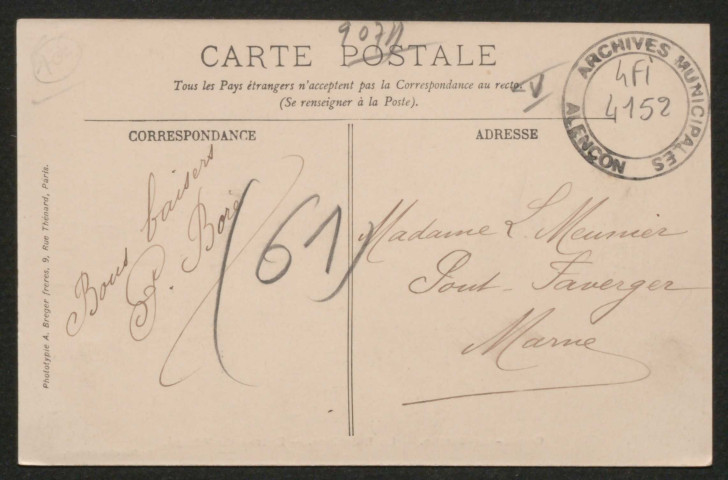 CARTE POSTALE
Tous les Pays étrangers n'acceptent pas la Correspondance au recto.
(Se renseigner à la Poste).
CORRESPONDANCE
ADRESSE
ARCHIVES MUNICIPALES
ALENÇON
4Fi
4152
Bons baisers
Boré
(61)
Madame L. Meunier
Pont-Faverger
Marne
Phototypie A. Breger frères, 9, Rue Thénard, Paris.